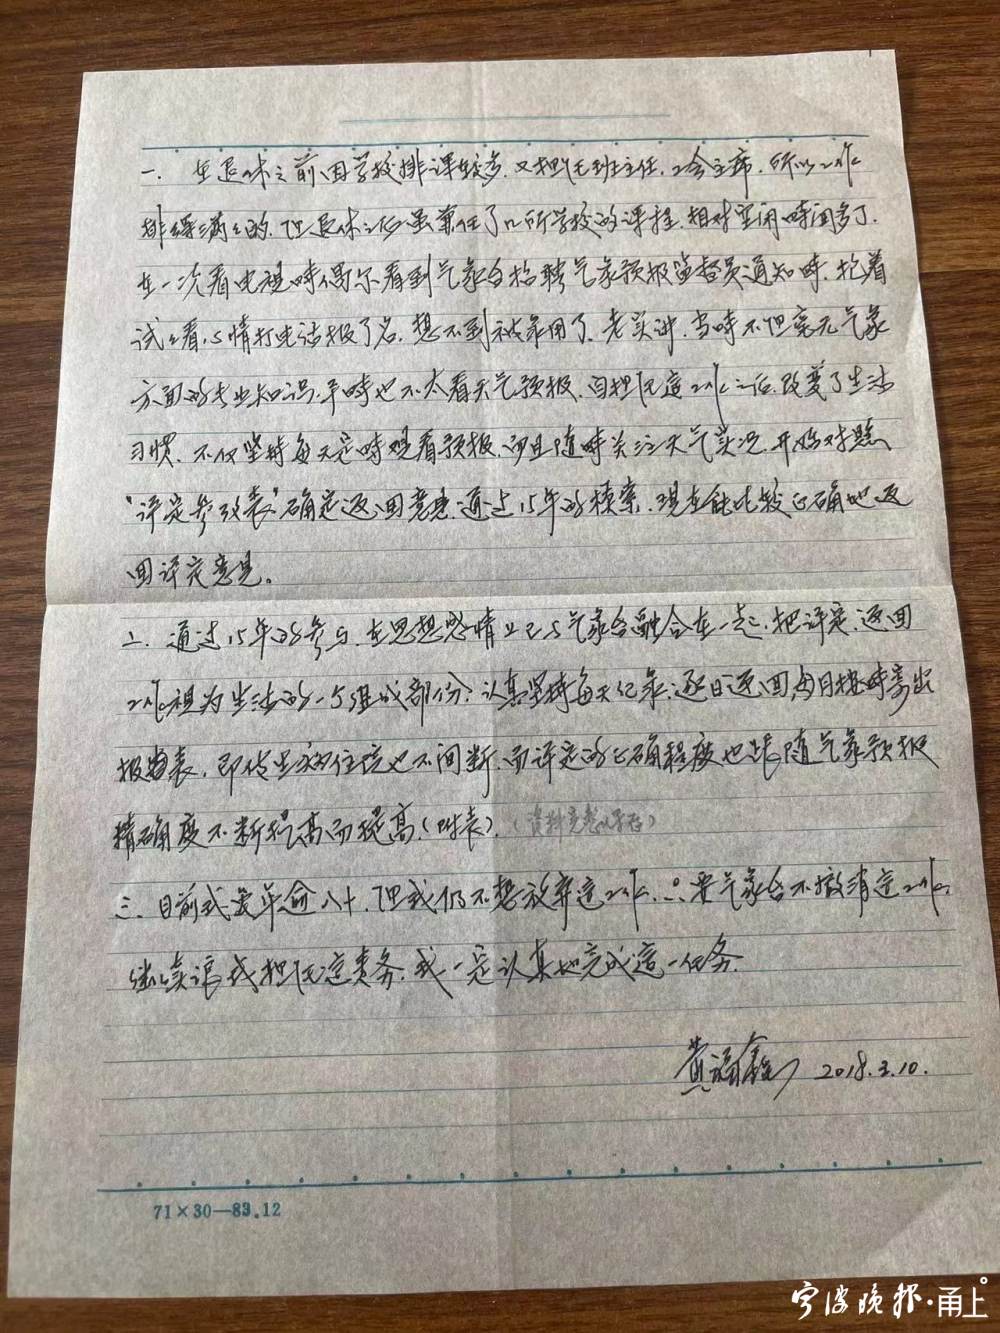 一. 在退休之前因学校排课较多，又担任班主任，工会主席，所以工作
排得满满的，但退休之后虽兼任了几所学校的课程，相对空闲时间多了，
在一次看电视时偶尔看到气象台招聘气象预报监督员通知时，抱着
试试看心情打电话报了名，想不到被录用了，老实讲，当时不但毫无气象
方面的专业知识，平时也不太看天气预报，自担任这工作之后，改变了生活
习惯，不仅坚持每天定时观看预报，而且随时关注天气实况，开始对照
“评定参考表”确定返回意见，通过15年的摸索，现在能比较正确地返
回评定意见。
二. 通过15年的参与，在思想感情上已与气象台融合在一起，把评定、返回
工作视为生活的一个组成部份，认真坚持每天记录，逐日返回，每月按时寄出
报告表，即使生病住院也不间断，而评定的正确程度也伴随气象预报
精确度不断提高而提高（附表）．（资料完整保存）
三. 目前我虽年龄八十，但我仍不想放弃这工作，只要气象台不撤消这工作，
继续让我担任这责务，我一定认真地完成这一任务．
黄福鑫 2018.3.10.
71×30—83.12
宁波晚报·甬上